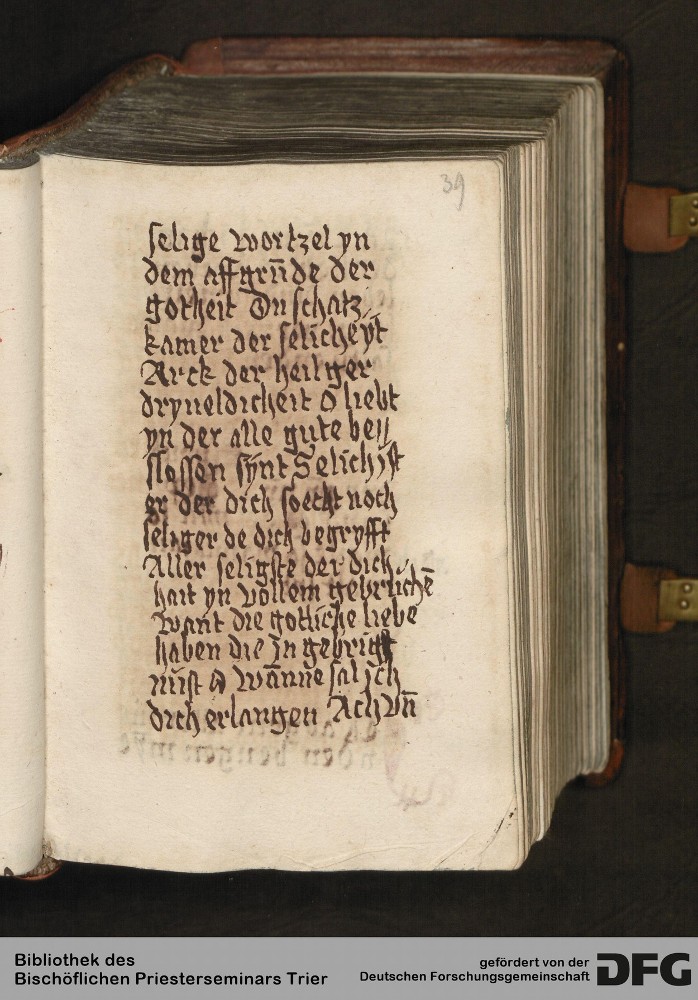 39
selige wortzel yn
dem affgrūde der
gotheit Du schatz
kamer der selicheyt
Arck der heilger
dryueldicheit O liebt
yn der alle gute bey
slossen synt Selich ist
er der dich soecht noch
seliger de dich begryfft
Aller seligste der dich
hait yn vollem gebruchē
Want die gotliche liebe
haben die in gebricht
nust O wāne sal ich
dich erlangen Ach vn̄
Bibliothek des
Bischöflichen Priesterseminars Trier
gefördert von der
Deutschen Forschungsgemeinschaft DFG